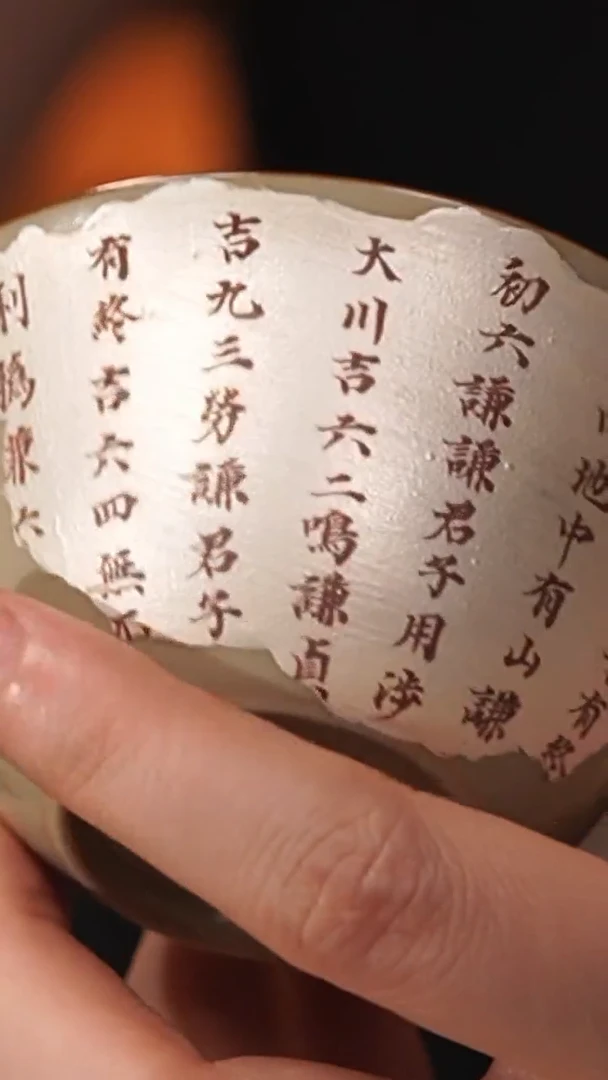 有終
地中有山謙
初六謙謙君子用涉
大川吉六二鳴謙貞
吉九三勞謙君子
有終吉六四無不
利撝謙六